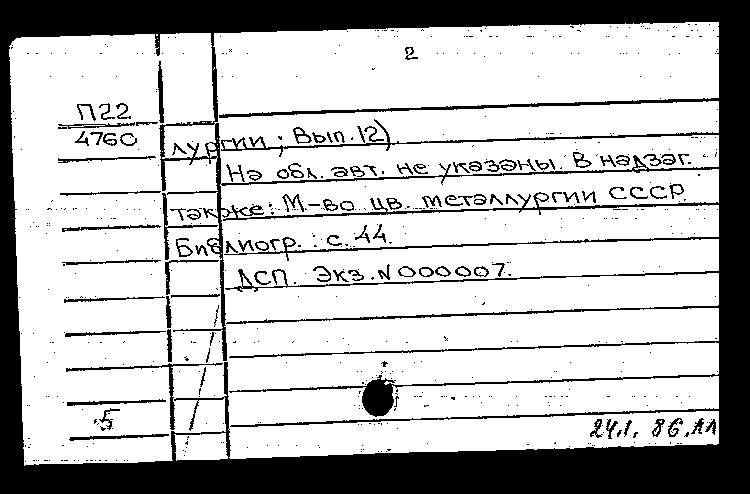 2
П22
4760
лургии; Вып. 12).
На обл. авт. не указаны. В надзаг.
также: М-во цв. металлургии СССР
Библиогр.: с. 44.
ДСП. Экз. N 000007.
5
24.1. 86.